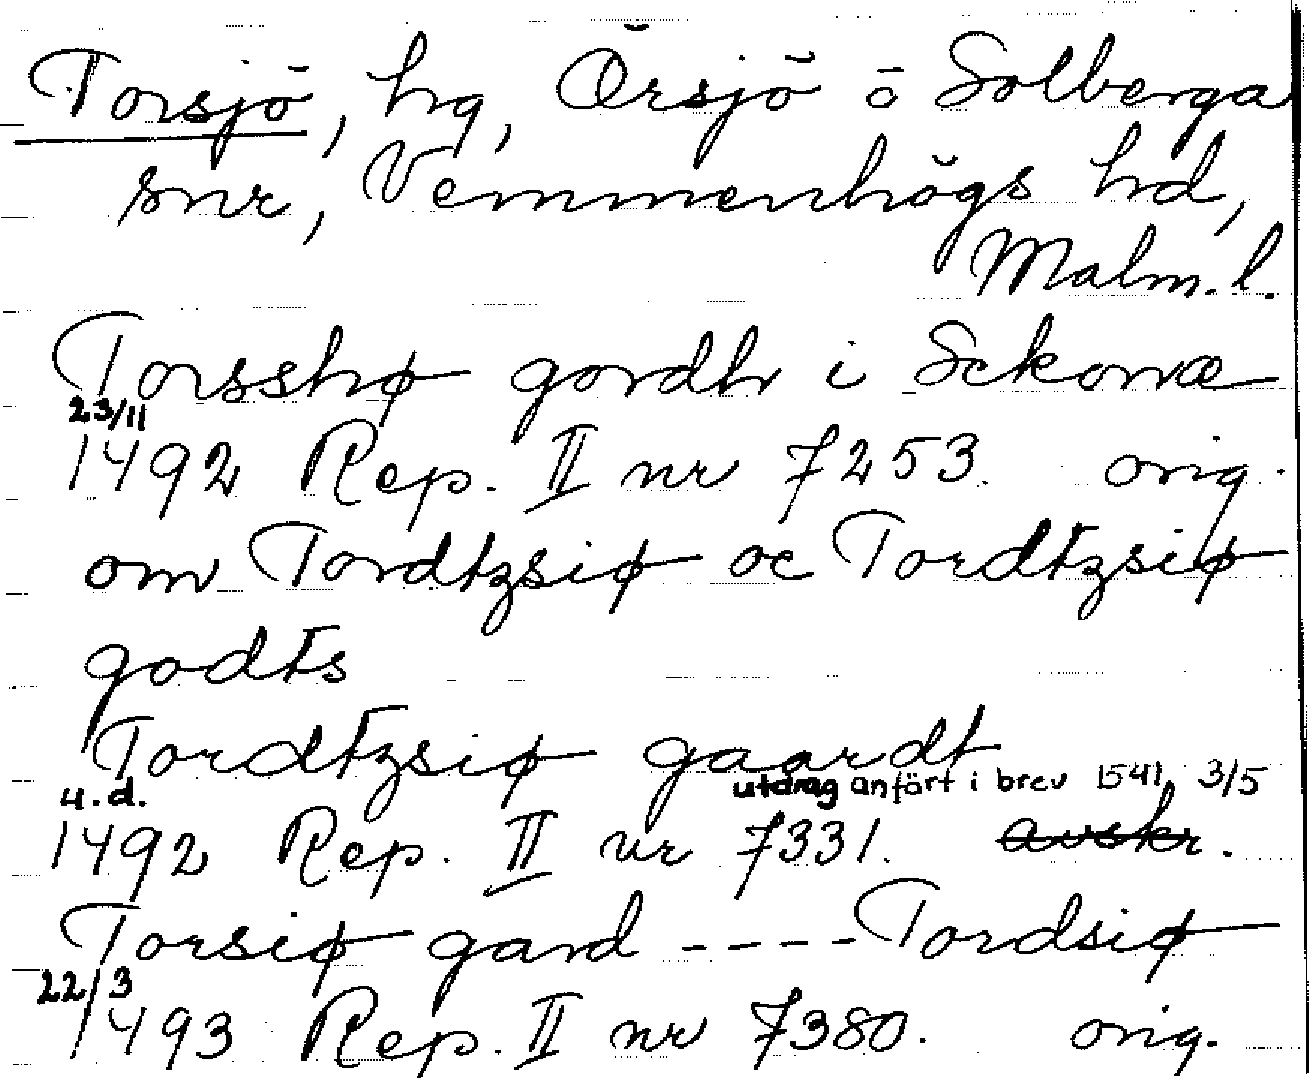 Torsjö, hg, Örsjö o Solberga
snr, Vemmenhögs hd,
Malm. l.
Torsshø gordh i Sckonæ
23/11
1492 Rep. II nr 7253. orig.
om Tordtzsiø oc Tordtzsiø
godts
Tordtzsiø gaardt
u. d. utdrag anfört i brev 1541 3/5
1492 Rep. II nr 7331. avskr.
Torsiø gard ---- Tordsiø
22/3
1493 Rep. II nr 7380. orig.